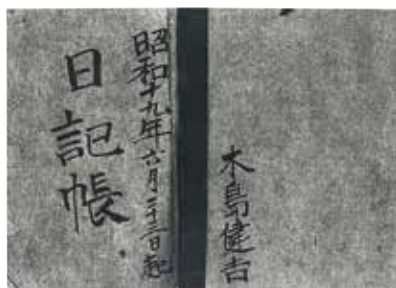 木島健吉
昭和十九年六月二十三日起
日記帳